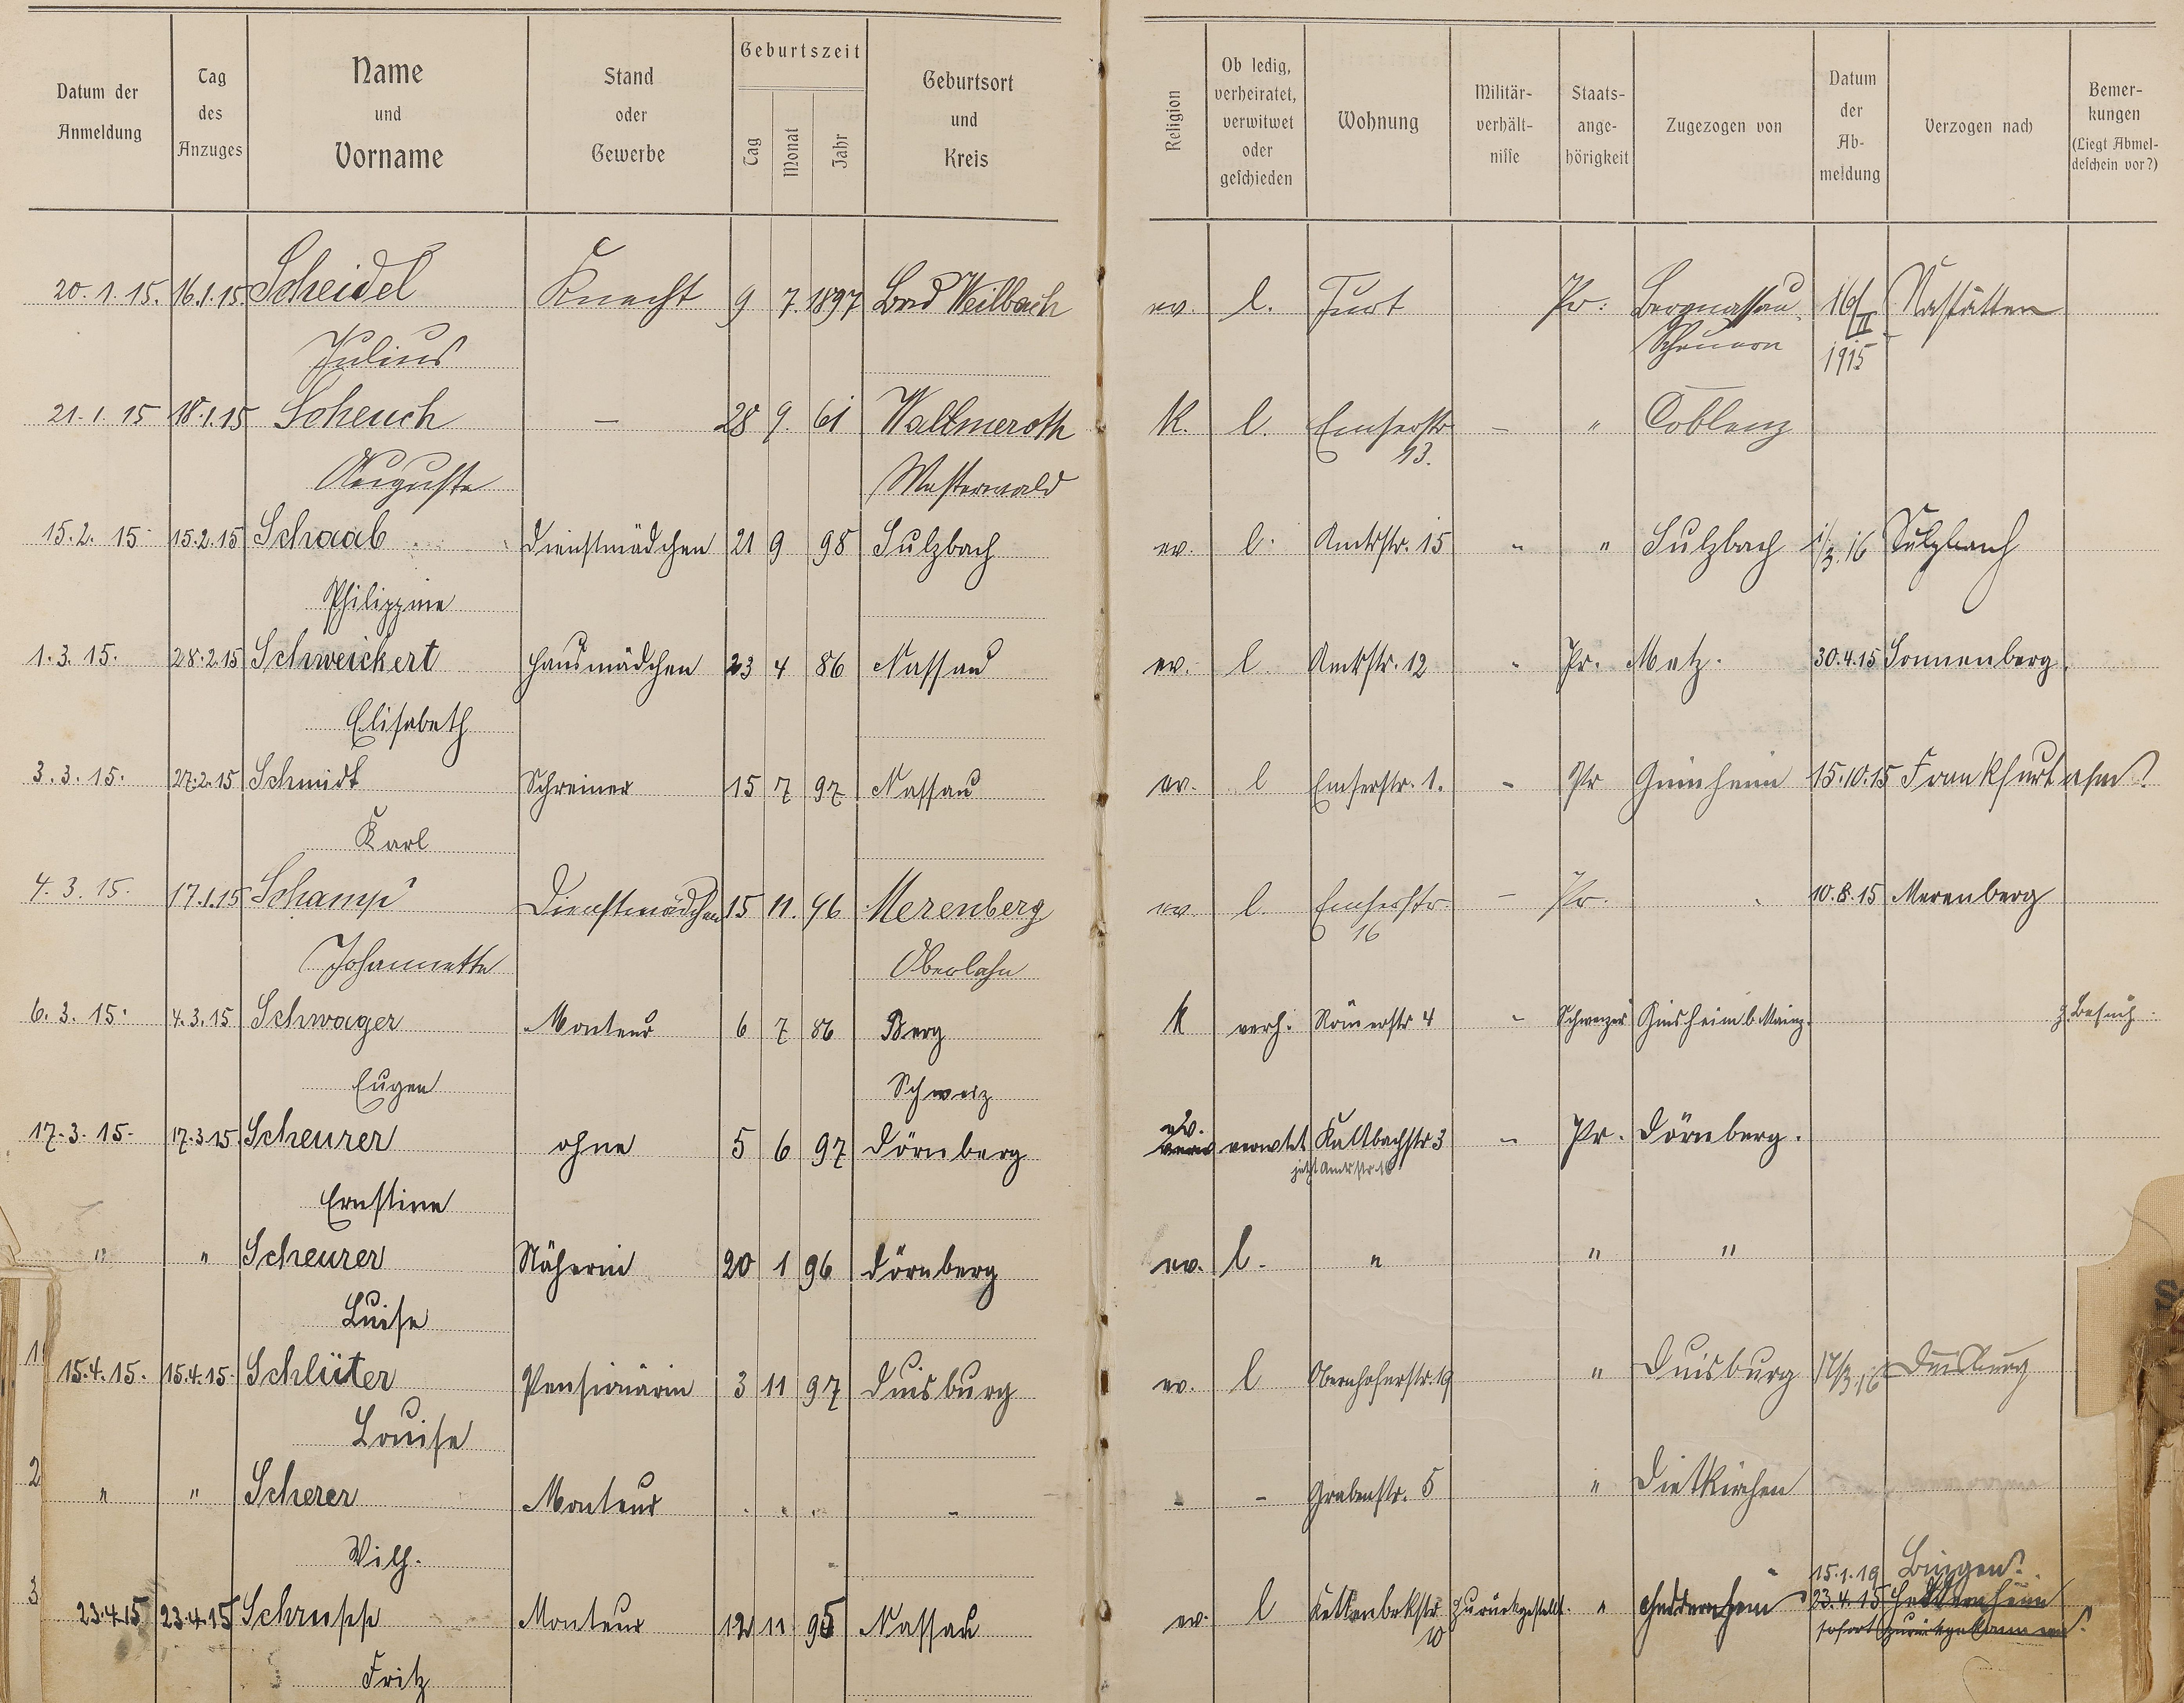 Datum der Anmeldung | Tag des Anzuges | Name und Vorname | Stand oder Gewerbe | Geburtszeit Tag Monat Jahr | Geburtsort und Kreis | Religion | Ob ledig, verheiratet, verwitwet oder geschieden | Wohnung | Militär-verhält-nisse | Staats-ange-hörigkeit | Zugezogen von | Datum der Ab-meldung | Verzogen nach | Bemer-kungen (Liegt Abmel-deschein vor?)
20.1.15. 16.1.15 Scheidel Knecht 9 7. 1897 Bad Weilbach ev. l. Furt Pr. Bergnassau 16/II Nastätten
Julius Scheuern 1915
21.1.15 18.1.15 Scheuch – 28 9. 61 Wallmeroth K. l. Emserstr – " Coblenz
Auguste Westerwald 13.
15.2.15 15.2.15 Schaab Dienstmädchen 21 9 98 Sulzbach ev. l. Amtsstr. 15 - " Sulzbach 1/3.16 Sulzbach
Philippine
1.3.15. 28.2.15 Schweickert Hausmädchen 23 4 86 Nassau ev. l. Amtsstr. 12 - Pr. Metz. 30.4.15 Sonnenberg.
Elisabeth
3.3.15. 27.2.15 Schmidt Schreiner 15 7 97 Nassau ev. l Emserstr. 1. - Pr 15.10.15 Frankfurt
Karl
4.3.15. 17.1.15 Schamp Dienstmädchen 15 11. 96 Merenberg ev. l. Emserstr. – Pr. 10.8.15 Merenberg
Johannette Oberlahn 16
6.3.15. 4.3.15 Schwager Monteur 6 7 86 Berg K verh. Römerstr 4 - Schweizer Ginsheim b. Mainz. z. Besuch
Eugen Schweiz
17.3.15. 17.3.15. Scheurer ohne 5 6 97 Dörnberg ev. verwtet Kaltbachstr 3 - Pr. Dörnberg.
jetzt Amtsstr. 16
Ernstine
" " Scheurer Näherin 20 1 96 Dörnberg ev. l. " " "
Luise
15.4.15. 15.4.15. Schlüter Pensionärin 3 11 97 Duisburg ev. l Obernhoferstr. 19 " Duisburg 17/3.16 Duisburg
Louise
2 " " Scherer Monteur - - - - - - Grabenstr. 5 " Dietkirchen
Wilh.
15.1.19 Bingen
3 23.4.15 23.4.15 Schrupp Monteur 12 11 95 Nassau ev. l zurückgestellt. " Heddernheim 23.4.15 Heddernheim
10 sofort zurückgekommen
Fritz